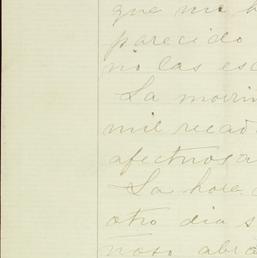 que me h
parecido
no las es
La
mil recad
afectuosa
La hora
otro dia s
abra